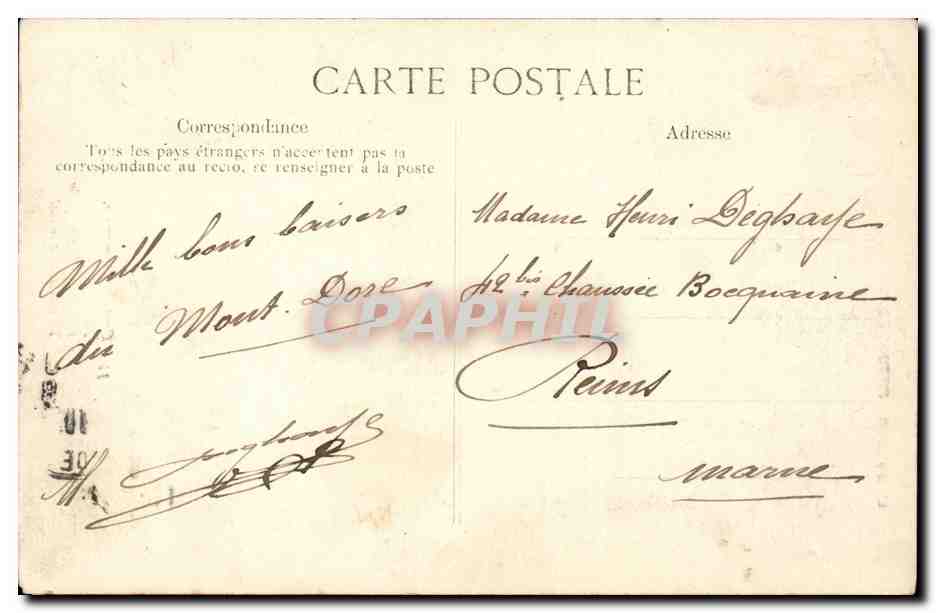 CARTE POSTALE
Correspondance
Tous les pays étrangers n'acceptent pas la
correspondance au recto, se renseigner à la poste
Mille bons baisers
du Mont. Dore
Adresse
Madame Henri Déghaye
42 bis Chaussée Bocquaine
Reims
Marne
CPAPHIL